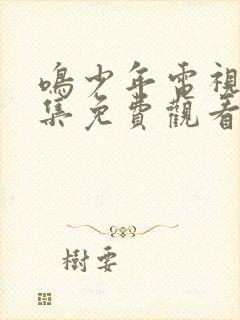 鳴少年電視
集免費觀看
樹要